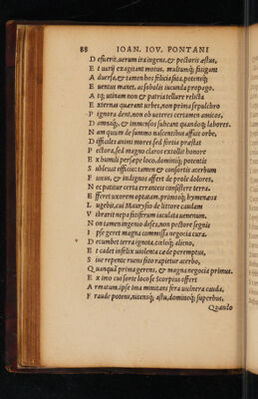 88 IOAN. IOV. PONTANI
D efuerit, uerum ira ingens, & pectoris æstus,
E t uarij exagitant motus, multumq; fatigant
A duersa, & tamen hos felici fata, potentiq;
E uentus manet, ac sobolis iucunda propago.
A tq; utinam non & patria tellure relicta
E xternas quærant urbes, non prima sepulchro
P ignora dent, non ob ueteres certamen amicos,
D amnaq;, & immensos subeant quandoq; labores.
N am quum de summo nascentibus affuit orbe,
D ifficiles animi mores sed fortia præstat
P ectora, sed magno claros extollit honore
E x humili persæpe loco, dominisq; potentis
S ubleuat officijs tamen & consortis acerbum
F unus, & indignos affert de prole dolores,
N ec patitur certa terrenteis consistere terra.
E fferet uxorem optatam, primosq; hymenæos
L ugebit, cui Maurusio de littore caudam
V ibrarit nepa pestiferum iaculata uenenum.
N on tamen ingenio deses, non pectore segnis
I pse geret magna commissa negocia cura.
D ecumbet terra ignota, cœloq; alieno,
E t cadet infelix uiolenta cæde peremptus,
S iue repente ruens fato rapietur acerbo,
Q uanquam prima gerens, & magna negocia primus.
E x imo cui forte loco se scorpius offert
A rmatum, ipse ima minitans fera uulnera cauda,
F raude potens, uicensq; astu, dominoq; superbus,
Quanto